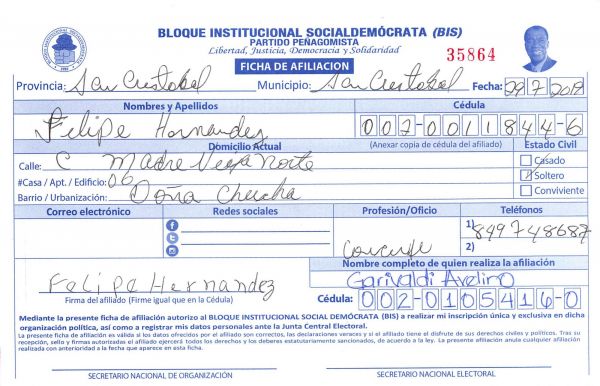 BLOQUE INSTITUCIONAL SOCIALDEMÓCRATA (BIS)
PARTIDO PEÑAGOMISTA
Libertad, Justicia, Democracia y Solidaridad
35864
FICHA DE AFILIACION
Provincia: San Cristobal Municipio: San Cristobal Fecha: 29 7 2019
Nombres y Apellidos Cédula
Felipe Hernandez 007-0011844-6
Domicilio Actual (Anexar copia de cédula del afiliado) Estado Civil
Calle: C Madre Vieja Norte Casado
#Casa / Apt. / Edificio: 06 Soltero
Barrio / Urbanización: Doña Chucha Conviviente
Correo electrónico Redes sociales Profesión/Oficio Teléfonos
1) 8497748687
2)
Nombre completo de quien realiza la afiliación
Felipe Hernandez Garivaldi Avelino
Firma del afiliado (Firme igual que en la Cédula) Cédula: 002-0105416-0
Mediante la presente ficha de afiliación autorizo al BLOQUE INSTITUCIONAL SOCIAL DEMÓCRATA (BIS) a realizar mi inscripción única y exclusiva en dicha
organización política, así como a registrar mis datos personales ante la Junta Central Electoral.
La presente ficha de afiliación es válida si los datos ofrecidos por el afiliado son correctos, las declaraciones veraces y si el afiliado tiene el disfrute de sus derechos civiles y políticos. Tras su
recepción, sello y firmas autorizadas el afiliado ejercerá todos los derechos y los deberes estatutariamente sancionados, de acuerdo a la ley. La presente afiliación anula cualquier afiliación
realizada con anterioridad a la fecha que aparece en esta ficha.
SECRETARIO NACIONAL DE ORGANIZACIÓN SECRETARIO NACIONAL ELECTORAL